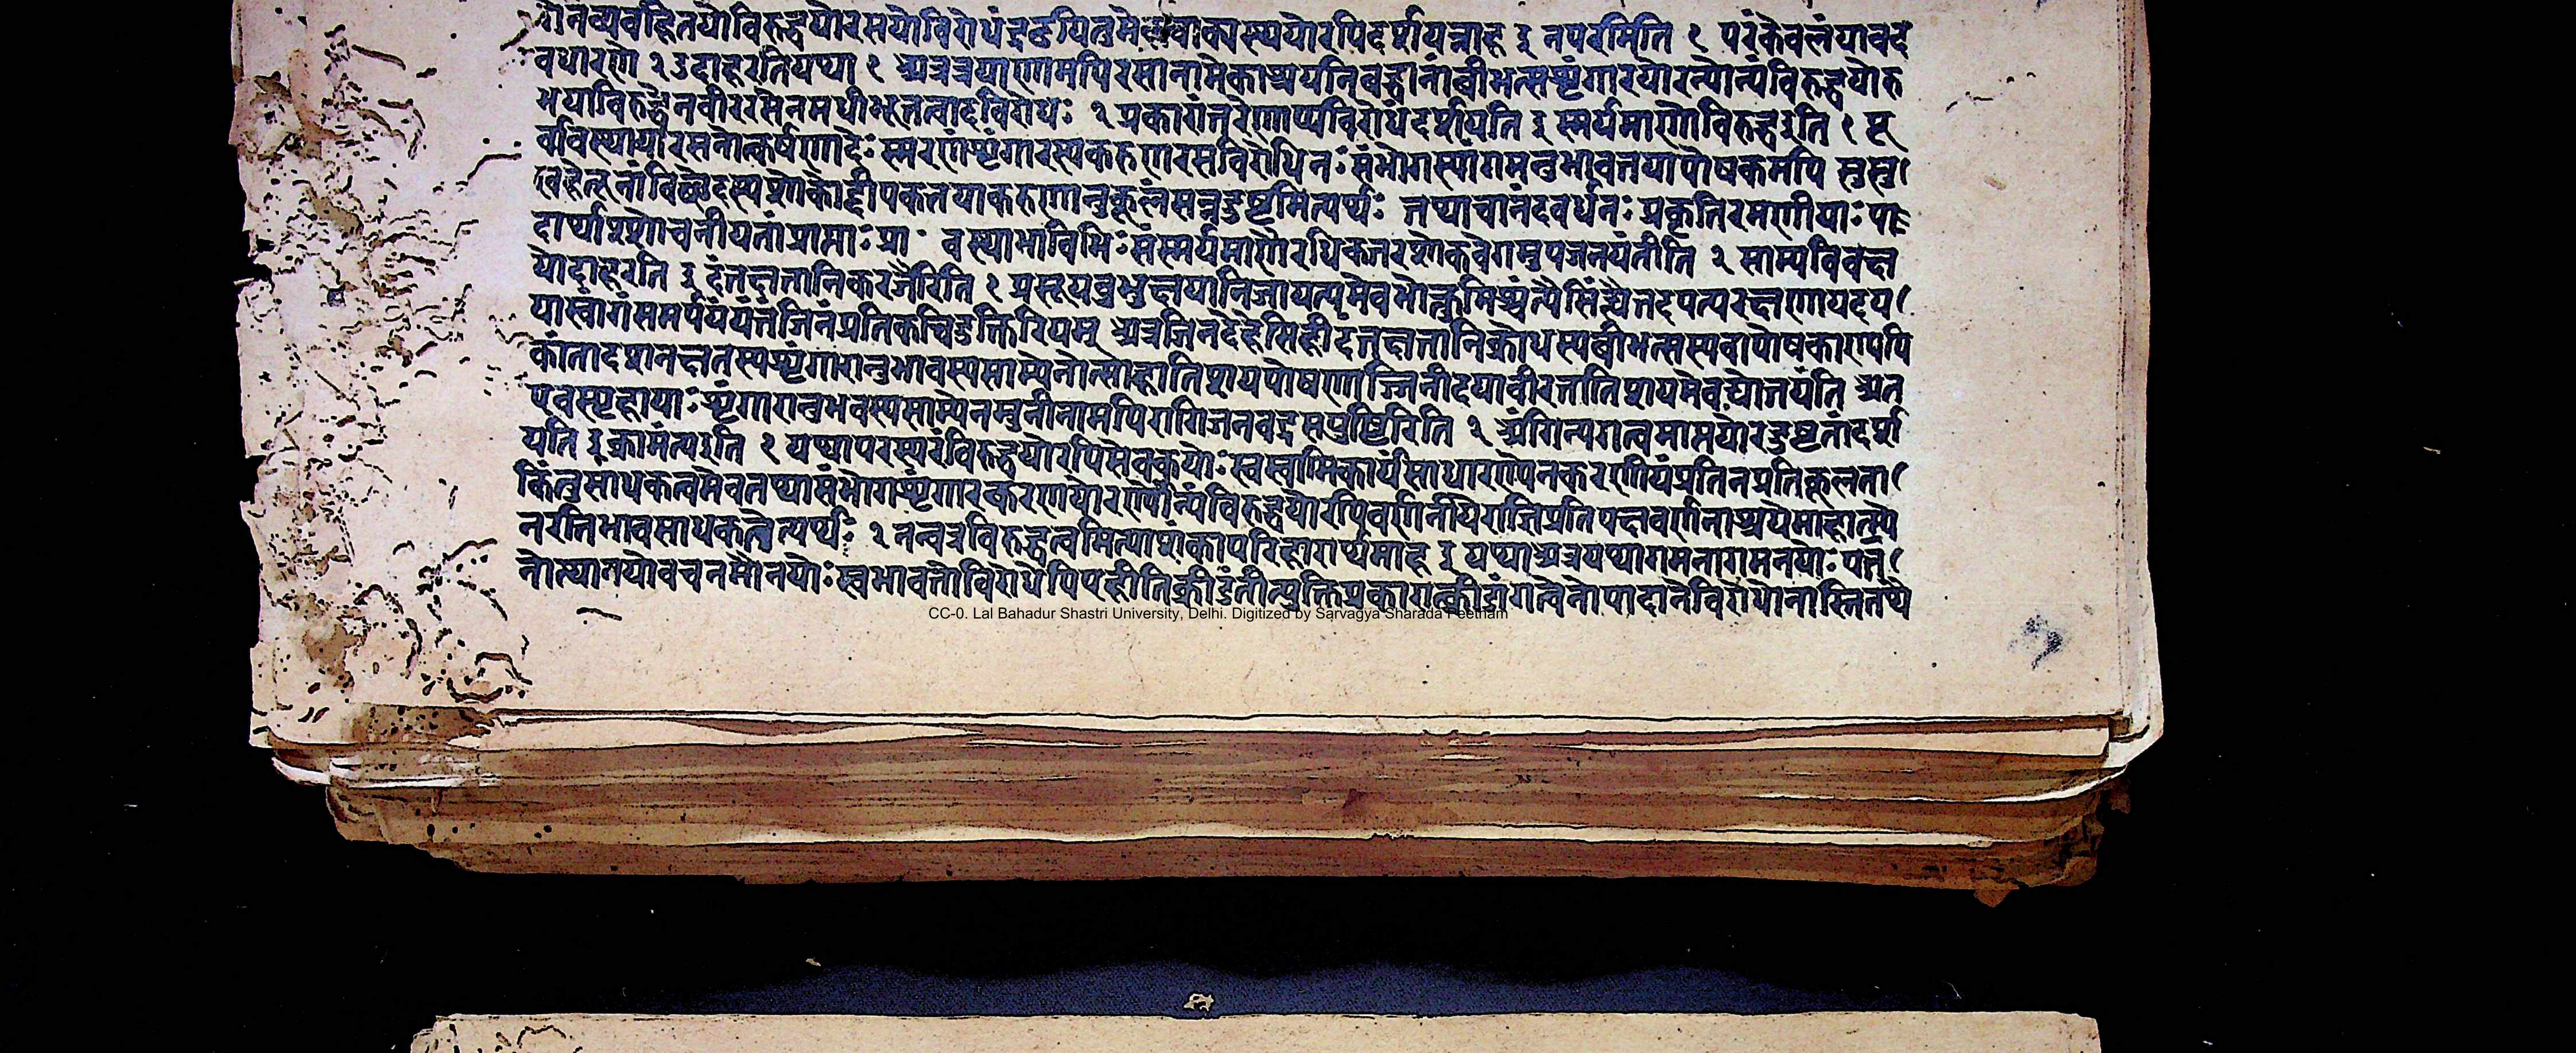 रोनव्यवहितयोविरुद्धयोरसयोविरोधंद्रढयितुमेकवाक्यस्थयोरपिदर्शयन्नाह इ नपरमिति १ परंकेवलंयावदे
वधारणे २ उदाहरतियथा १ अत्रत्रयाणामपिरसानामेकाश्रयनिबद्धानांबीभत्सशृंगारयोरन्योन्यंविरुद्धयोरु
भयाविरुद्धेनवीररसेनमध्यीभूतत्वादविरोधः २ प्रकारांतरेणाप्यविरोधंदर्शयति इ स्मर्यमाणोविरुद्धइति १ पू
र्वावस्थायांरसनोत्कर्षणादेः स्मरणंशृंगारस्यकरुणरसविरोधिनः संभोगस्यांगमनुभावतयापोषकमपि
विच्छेदस्यशोकोद्दीपकतयाकरुणानुकूलंसन्नदुष्टमित्यर्थः तथाचानंदवर्धनः प्रकृतिरमणीयाः पा
दार्थाश्शोचनीयतांप्राप्ताः प्रा वस्थाभाविभिः संस्मर्यमाणैरधिकतरशोकवेगमुपजनयंतीति २ साम्यविवक्ष
योदाहरति इ दंतक्षतानिकरजैरिति १ प्रसूयबुभुक्षयानिजापत्यमेवभोक्तुमिच्छंत्यैसिंह्यैतदपत्यरक्षणायदय
यास्वांगंसमर्पयंतंजिनंप्रतिकस्यचिदुक्तिरियम् अत्रजिनदेहेसिंहीदंतक्षतानिक्रोधस्यबीभत्सस्यवापोषकाण्यपि
कांतादशनक्षतस्यशृंगारानुभावस्यसाम्येनोत्साहातिशयपोषणाज्जिनीदयावीरतातिशयमेवद्योतयंति अत
एवस्पृहायाः शृंगारानुभवस्यसाम्येनमुनीनामपिरागिजनवद्रसपुष्टिरिति २ अंगिन्यंगत्वमाप्तयोरदुष्टतांदर्श
यति इ क्रामंत्यइति १ यथापरस्परंविरुद्धयोरपिसेवकयोः स्वस्वामिकार्यसाधारण्येनकरणीयंप्रतिनप्रतिकूलता
किंतुसाधकत्वमेवतथासंभोगशृंगारकरुणयोरन्योन्यंविरुद्धयोरपिवर्णनीयेराजप्रतिपक्षवर्णनाश्रयेमाहात्म्ये
नरतिभावसाधकतेत्यर्थः २ नन्वत्रविरुद्धत्वमित्याशंकापरिहारार्थमाह इ यथाअत्रयथागमनागमनयोः पत
नोत्थानयोर्वचनमौनयोः स्वभावतोविरोधेपिएहीतिक्रीडंतीत्युक्तिप्रकारात्क्रीडांगत्वेनोपादानेविरोधोनास्तितथे
CC-0. Lal Bahadur Shastri University, Delhi. Digitized by Sarvagya Sharada Peetham